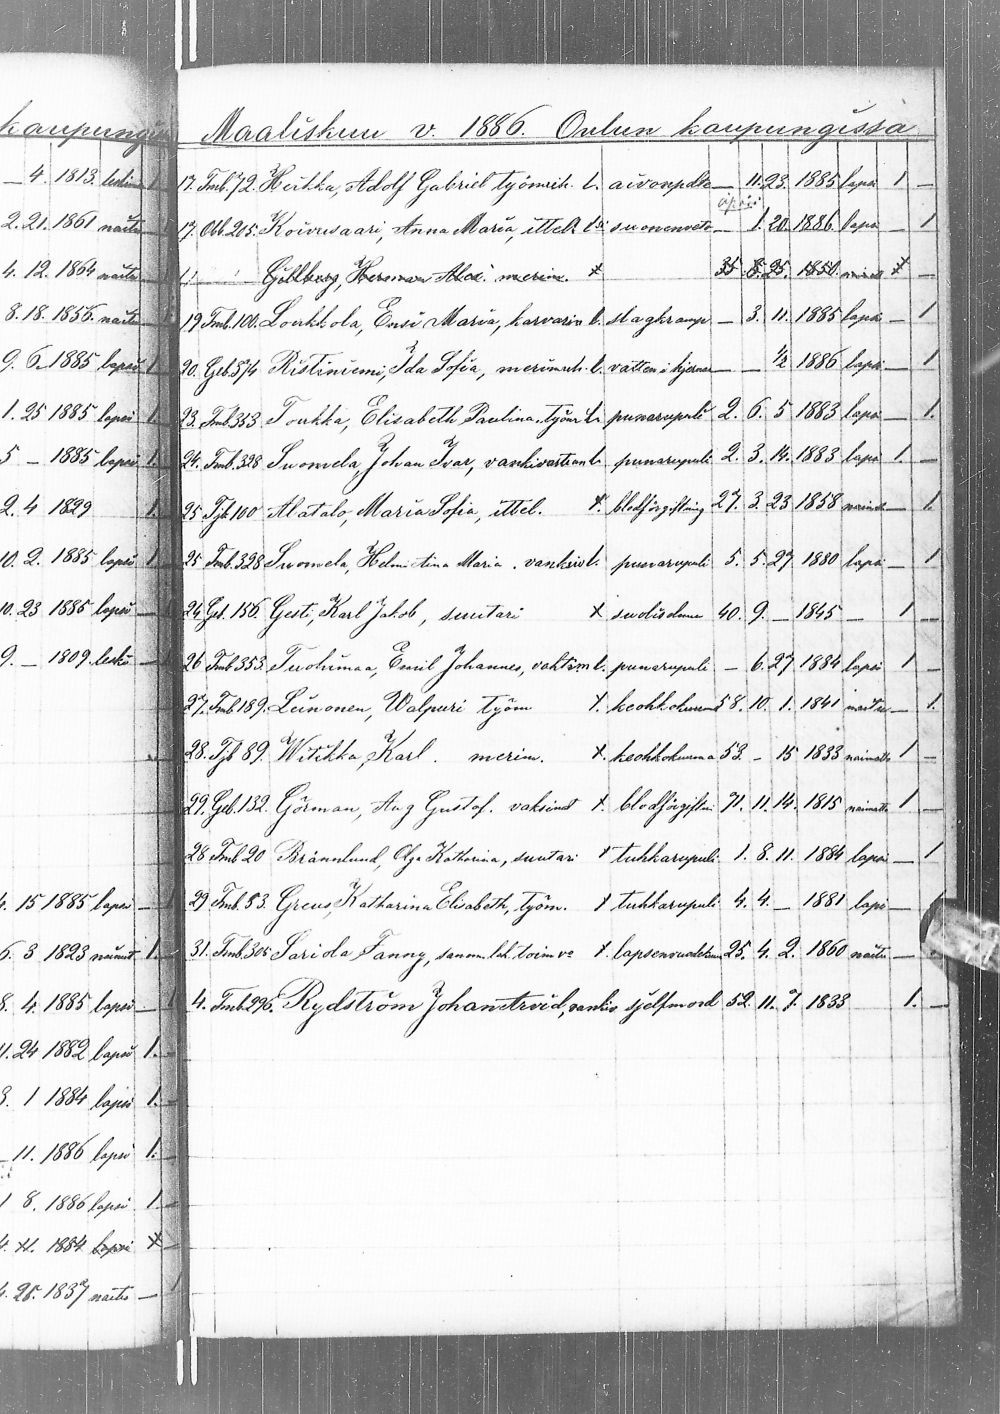 kaupungissa
4. 1813. leskim 1.
2. 21. 1861 naitu
4. 12. 1864 naitu
8. 18. 1856. naitu
9. 6. 1885 lapsi 1.
1. 25 1885 lapsi 1.
5 — 1885 lapsi 1.
2. 4 1829 1.
10. 2. 1885 lapsi 1.
10. 23 1885 lapsi —
9. — 1809. leski —
4. 15 1885 lapsi —
6. 3 1823 1.
8. 4. 1885 lapsi —
11. 24 1882 lapsi 1.
3. 1 1884 lapsi 1.
— 11. 1886 lapsi 1.
1 8. 1886 lapsi 1.
1884 lapsi
4. 25. 1837 naitu —
Maaliskuu v. 1886. Oulun kaupungissa
17. Tmb. 72. Adolf Gabriel työmieh. l. — 11. 23. 1885 lapsi 1 —
17. 215. Koivusaari, Anna Maria, ittell. suonenveto — 1. 20. 1886 lapsi — 1
Gyllberg, Herman Alex. merim. 35 8. 25. 1850 —
19 Tmb. 100. Loukkola, Ensi Maria, karvarin l. slaghramp — 3. 11. 1885 lapsi — 1
20. Geb. 574 Ristiniemi, Ida Sofia, merimieh. l. vatten i hjernan — — 1/2 1886 lapsi — 1
23. Tmb. 353 Toukka, Elisabeth Paulina, työm l. punarupuli 2. 6. 5 1883 lapsi — 1.
24. Tmb. 328 Suomela, Johan Ivar, vankivartian l. punarupuli 2. 3. 14. 1883 lapsi 1. —
25 Tjb 100 Alatalo, Maria Sofia, ittel. blodförgiftning 27. 3. 23 1858 — 1.
25 Tmb. 328 Suomela, Helmi Aina Maria. vankiv l. punarupuli 5. 5. 27 1880 lapsi — 1
24 Geb. 156. Gesti, Karl Jakob, suutari 40. 9. — 1845 — 1 —
26 Tmb 353. Tuohimaa, Emil Johannes, vahtim l. punarupuli — 6. 27 1884 lapsi 1 —
27. Tmb 189. Leinonen, Walpuri työm keohkokuume 58. 10. 1. 1841 — 1.
28. Tjb 89. Witikka, Karl. merim. keohkokuume 53. — 15 1833 1 —
29. Geb. 132. Görman, Aug Gustaf. blodförgiftni 71. 11. 14. 1815 1 —
28 Tmb 20 Brännlund, Olga Katharina, suutari tuhkarupuli 1. 8. 11. 1884 lapsi — 1
29. Tmb. 83. Greus, Katharina Elisabeth, työm. tuhkarupuli 4. 4. — 1881 lapsi —
31. Tmb. 305 Sarida Fanny, 25. 4. 2. 1860 naitu —
4. Tmb. 296. Rydström Johan Arvid, vankiv självmord 52 11. 7. 1833 1. —